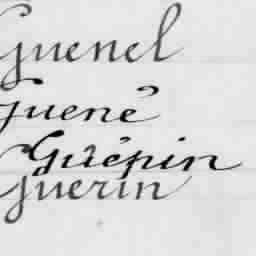 Guenel
Guené
Guêpin
Guerin